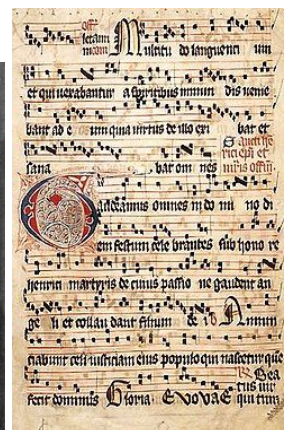 Multitu do languenti um
et qui vexabantur a spiritibus inmun dis venie
bant ad e um quia virtus de illo exi bat et
sana bat om nes
Gaudeamus omnes in do mi no di
em festum cele brantes sub hono re
henrici martyris de cuius passio ne gaudent an
ge li et collau dant filium de i Annun
ciabunt celi iusticiam eius populo qui nascetur que
fecit dominus Gloria EVOVAE qui tim